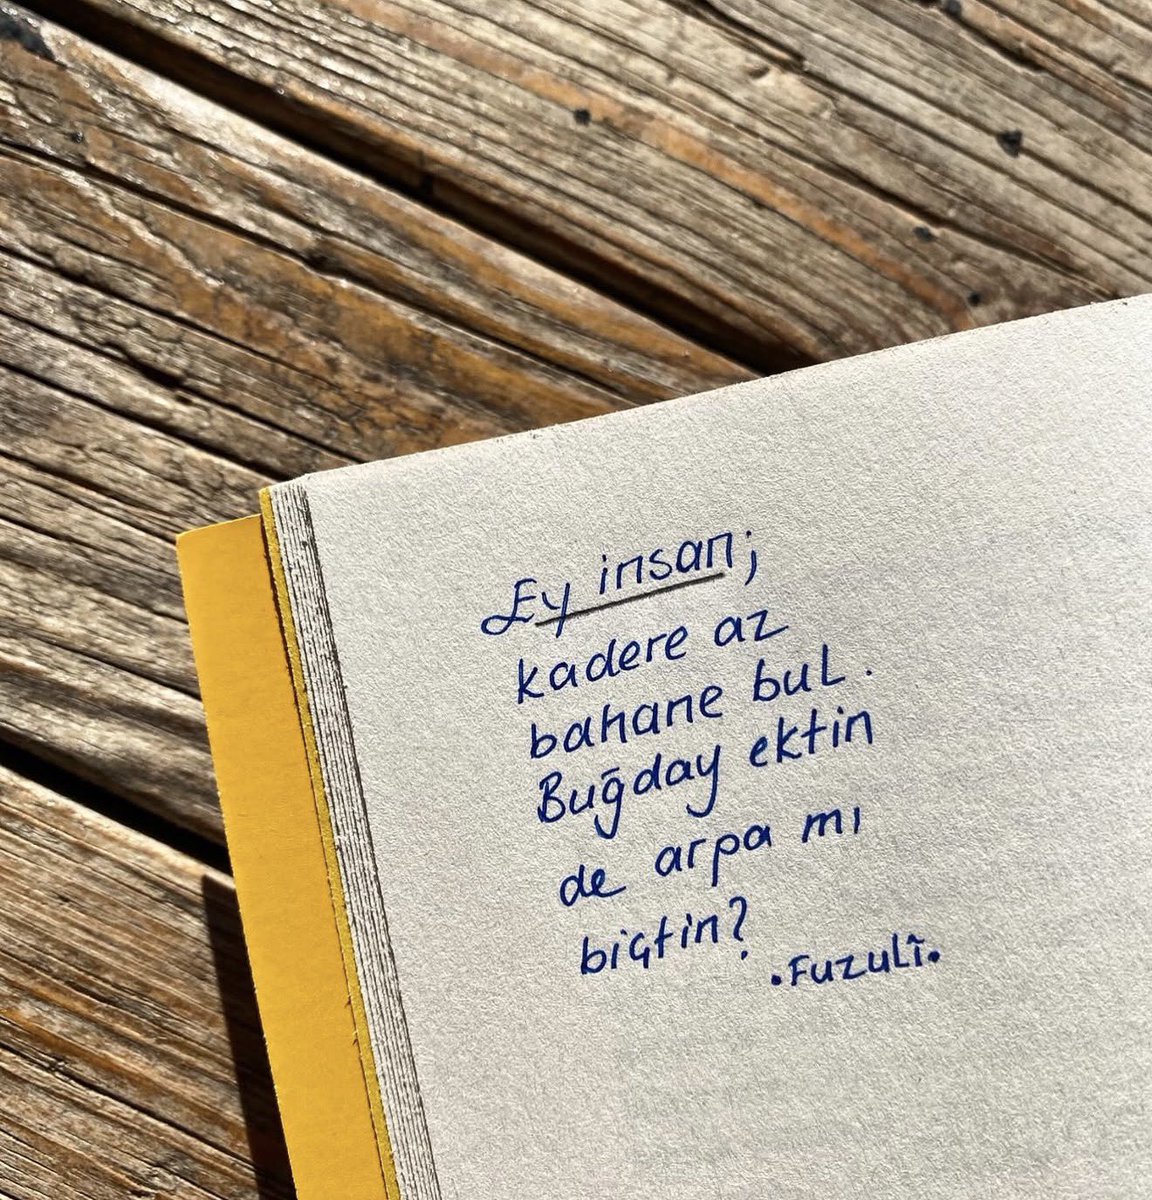 Ey insan;
kadere az
bahane bul.
Buğday ektin
de arpa mı
biçtin?
.Fuzulî.